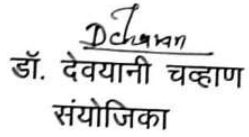 DChavan
डॉ. देवयानी चव्हाण
संयोजिका